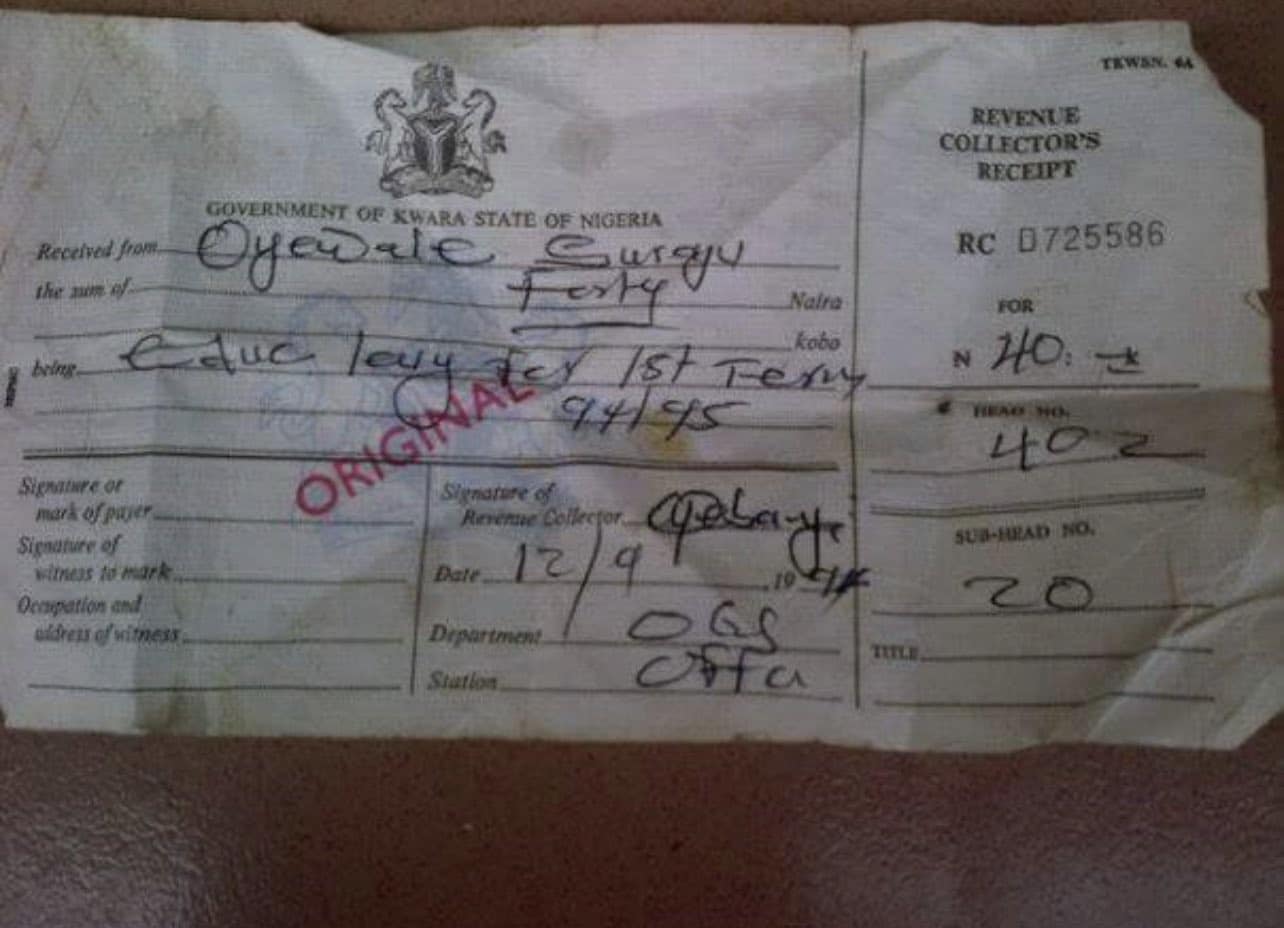 TKWSN. 6A
GOVERNMENT OF KWARA STATE OF NIGERIA
Received from Oyewale Suraju
the sum of Forty Naira
kobo
being Educ levy for 1st Term
94/95
ORIGINAL
Signature or
mark of payer
Signature of
witness to mark
Occupation and
address of witness
Signature of
Revenue Collector
Date 12/9 1994
Department OGS
Station Offa
REVENUE
COLLECTOR'S
RECEIPT
RC D725586
FOR
N 40: k
HEAD NO.
402
SUB-HEAD NO.
20
TITLE